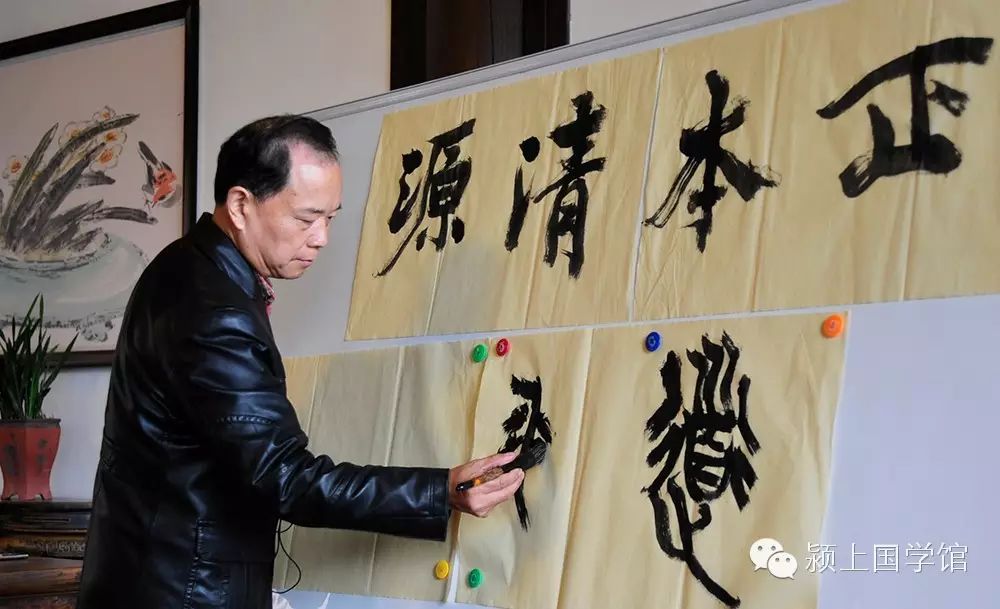 正本清源
道
颍上国学馆